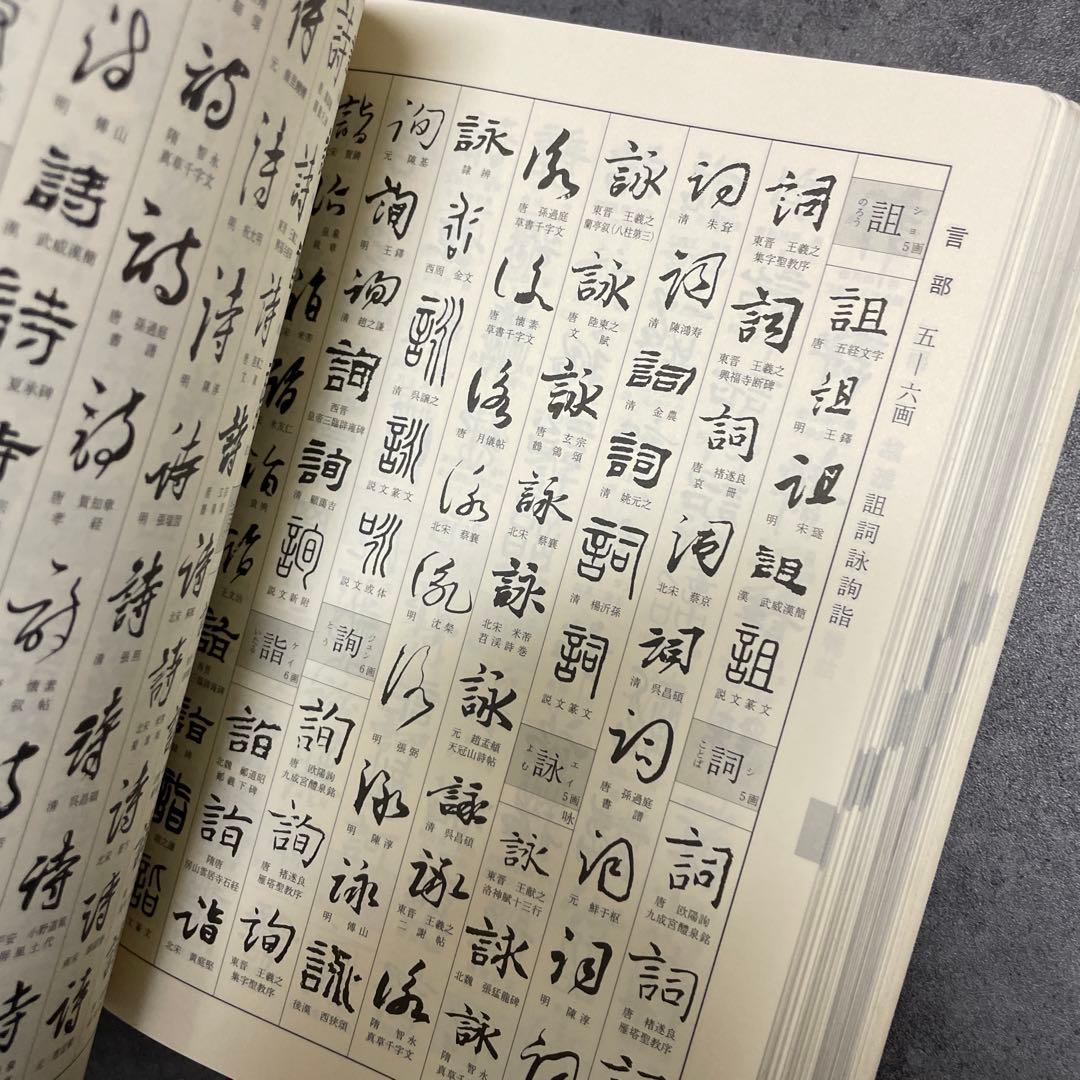 言部 五—六画 詛詞詠詢詣
詛 ショ のろう 5画
詛
唐 五経文字
詛
明 王鐸
詛
明 宋璲
詛
漢 武威漢簡
詛
説文篆文
詞 シ ことば 5画
詞
唐 欧陽詢
九成宮醴泉銘
詞
唐 褚遂良
雁塔聖教序
詞
東晋 王羲之
集字聖教序
詞
東晋 王羲之
興福寺断碑
詞
唐 褚遂良
哀冊
詞
北宋 蔡京
詞
清 呉昌碩
詞
唐 孫過庭
書譜
詞
元 鮮于枢
詞
明 陳淳
詞
詞
清 朱耷
詞
清 陳鴻寿
詞
清 金農
詞
清 姚元之
詞
清 楊沂孫
詞
説文篆文
詠 エイ よむ 5画 咏
詠
東晋 王献之
洛神賦十三行
詠
北魏 張猛龍碑
詠
隋 智永
真草千字文
詠
東晋 王羲之
蘭亭叙(八柱第三)
詠
唐 陸東之
文賦
詠
唐 玄宗
鶺鴒頌
詠
北宋 蔡襄
詠
北宋 米芾
苕渓詩巻
詠
元 趙孟頫
天冠山詩帖
詠
清 呉昌碩
詠
東晋 王羲之
二謝帖
詠
隋 智永
真草千字文
詠
唐 孫過庭
草書千字文
詠
唐 懐素
草書千字文
詠
唐 月儀帖
詠
北宋 蔡襄
詠
明 沈粲
詠
明 張弼
詠
明 陳淳
詠
明 傅山
詠
後漢 西狭頌
詠
隷辨
西周 金文
詠
清 呉譲之
詠
説文篆文
咏
説文或体
詢 ジュン とう 6画
詢
唐 欧陽詢
九成宮醴泉銘
詢
唐 褚遂良
雁塔聖教序
詢
東晋 王羲之
集字聖教序
詢
元 陳基
詢
明 王鐸
詢
清 趙之謙
詢
西晋
皇帝三臨辟雍碑
詢
清 顧藹吉
詢
説文新附
詣 ケイ いたる 6画
詣
北魏 鄭道昭
鄭羲下碑
詣
隋唐
房山雲居寺石経
詣
北宋 黄庭堅
詩
元
詩
明 祝允明
詩
明 陳淳
詩
明 張瑞図
詩
清 張照
詩
清 呉昌碩
詩
小野道風
屏風土代
詩
隋 智永
真草千字文
詩
唐 孫過庭
書譜
詩
唐 賀知章
孝経
詩
懐素
叙帖
詩
明 傅山
詩
武威漢簡
詩
夏承碑